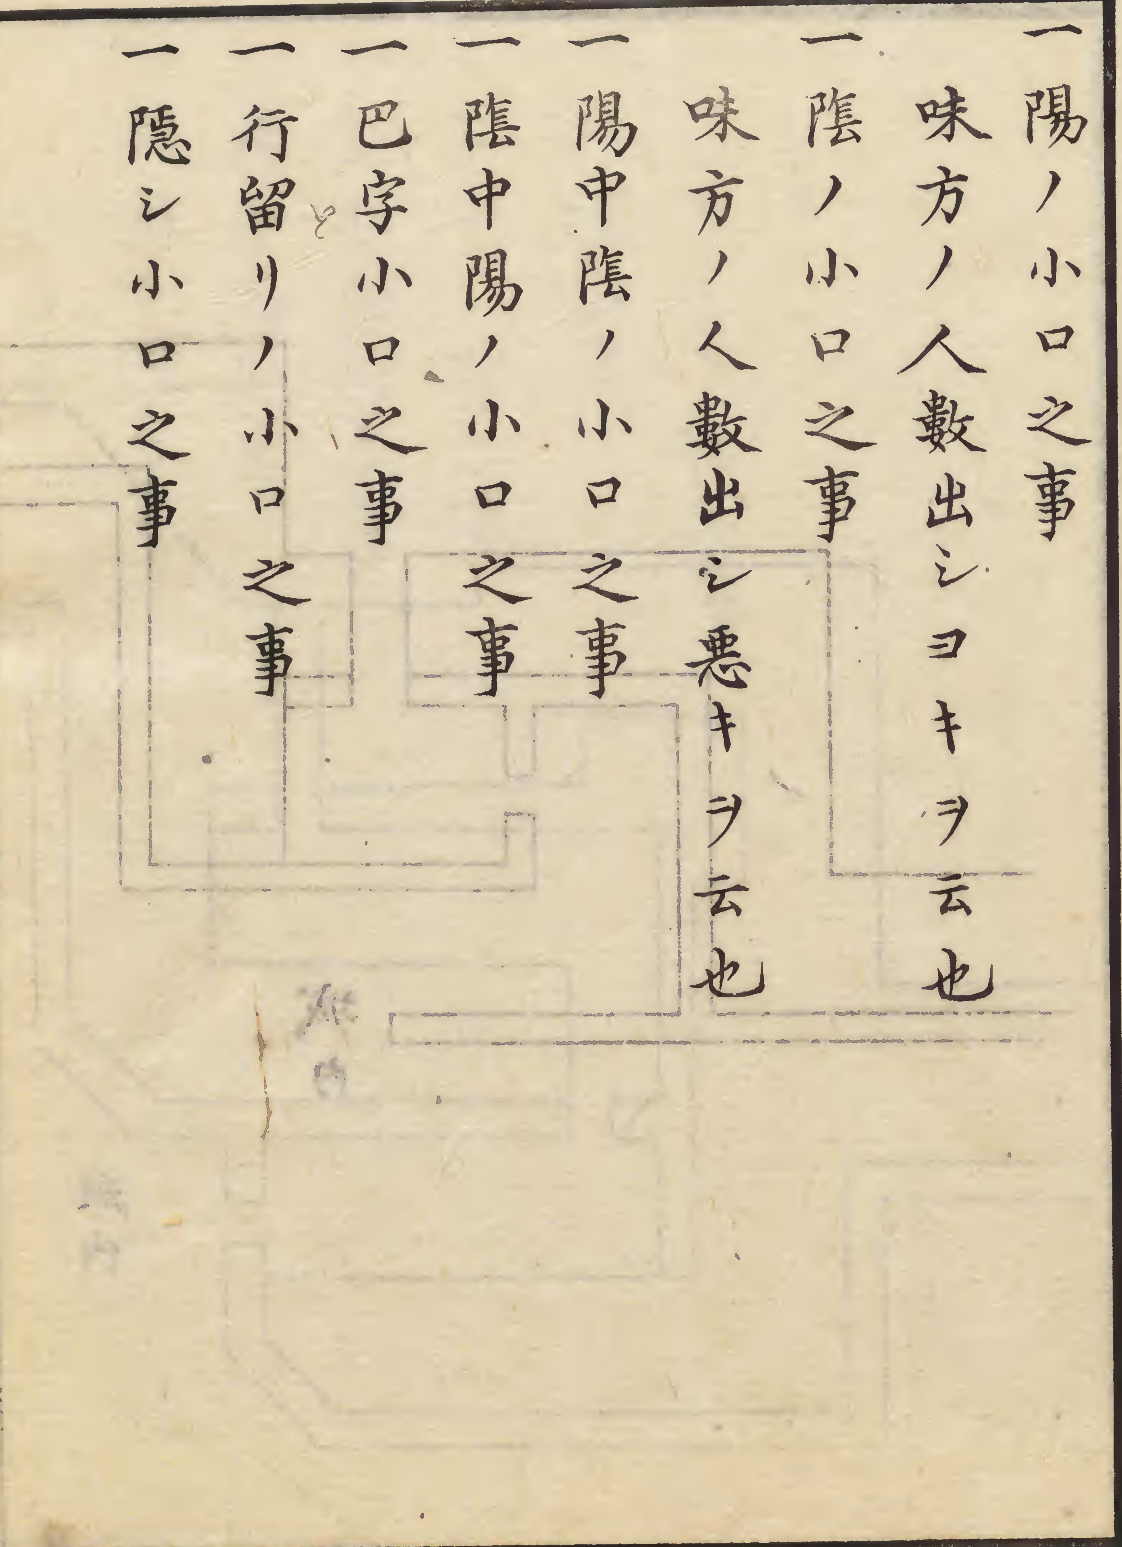 一陽ノ小口之事
味方ノ人數出シヨキヲ云也
一陰ノ小口之事
味方ノ人數出シ悪キヲ云也
一陽中陰ノ小口之事
一陰中陽ノ小口之事
一巴字小口之事
一行留リノ小口之事
一隱シ小口之事
城内